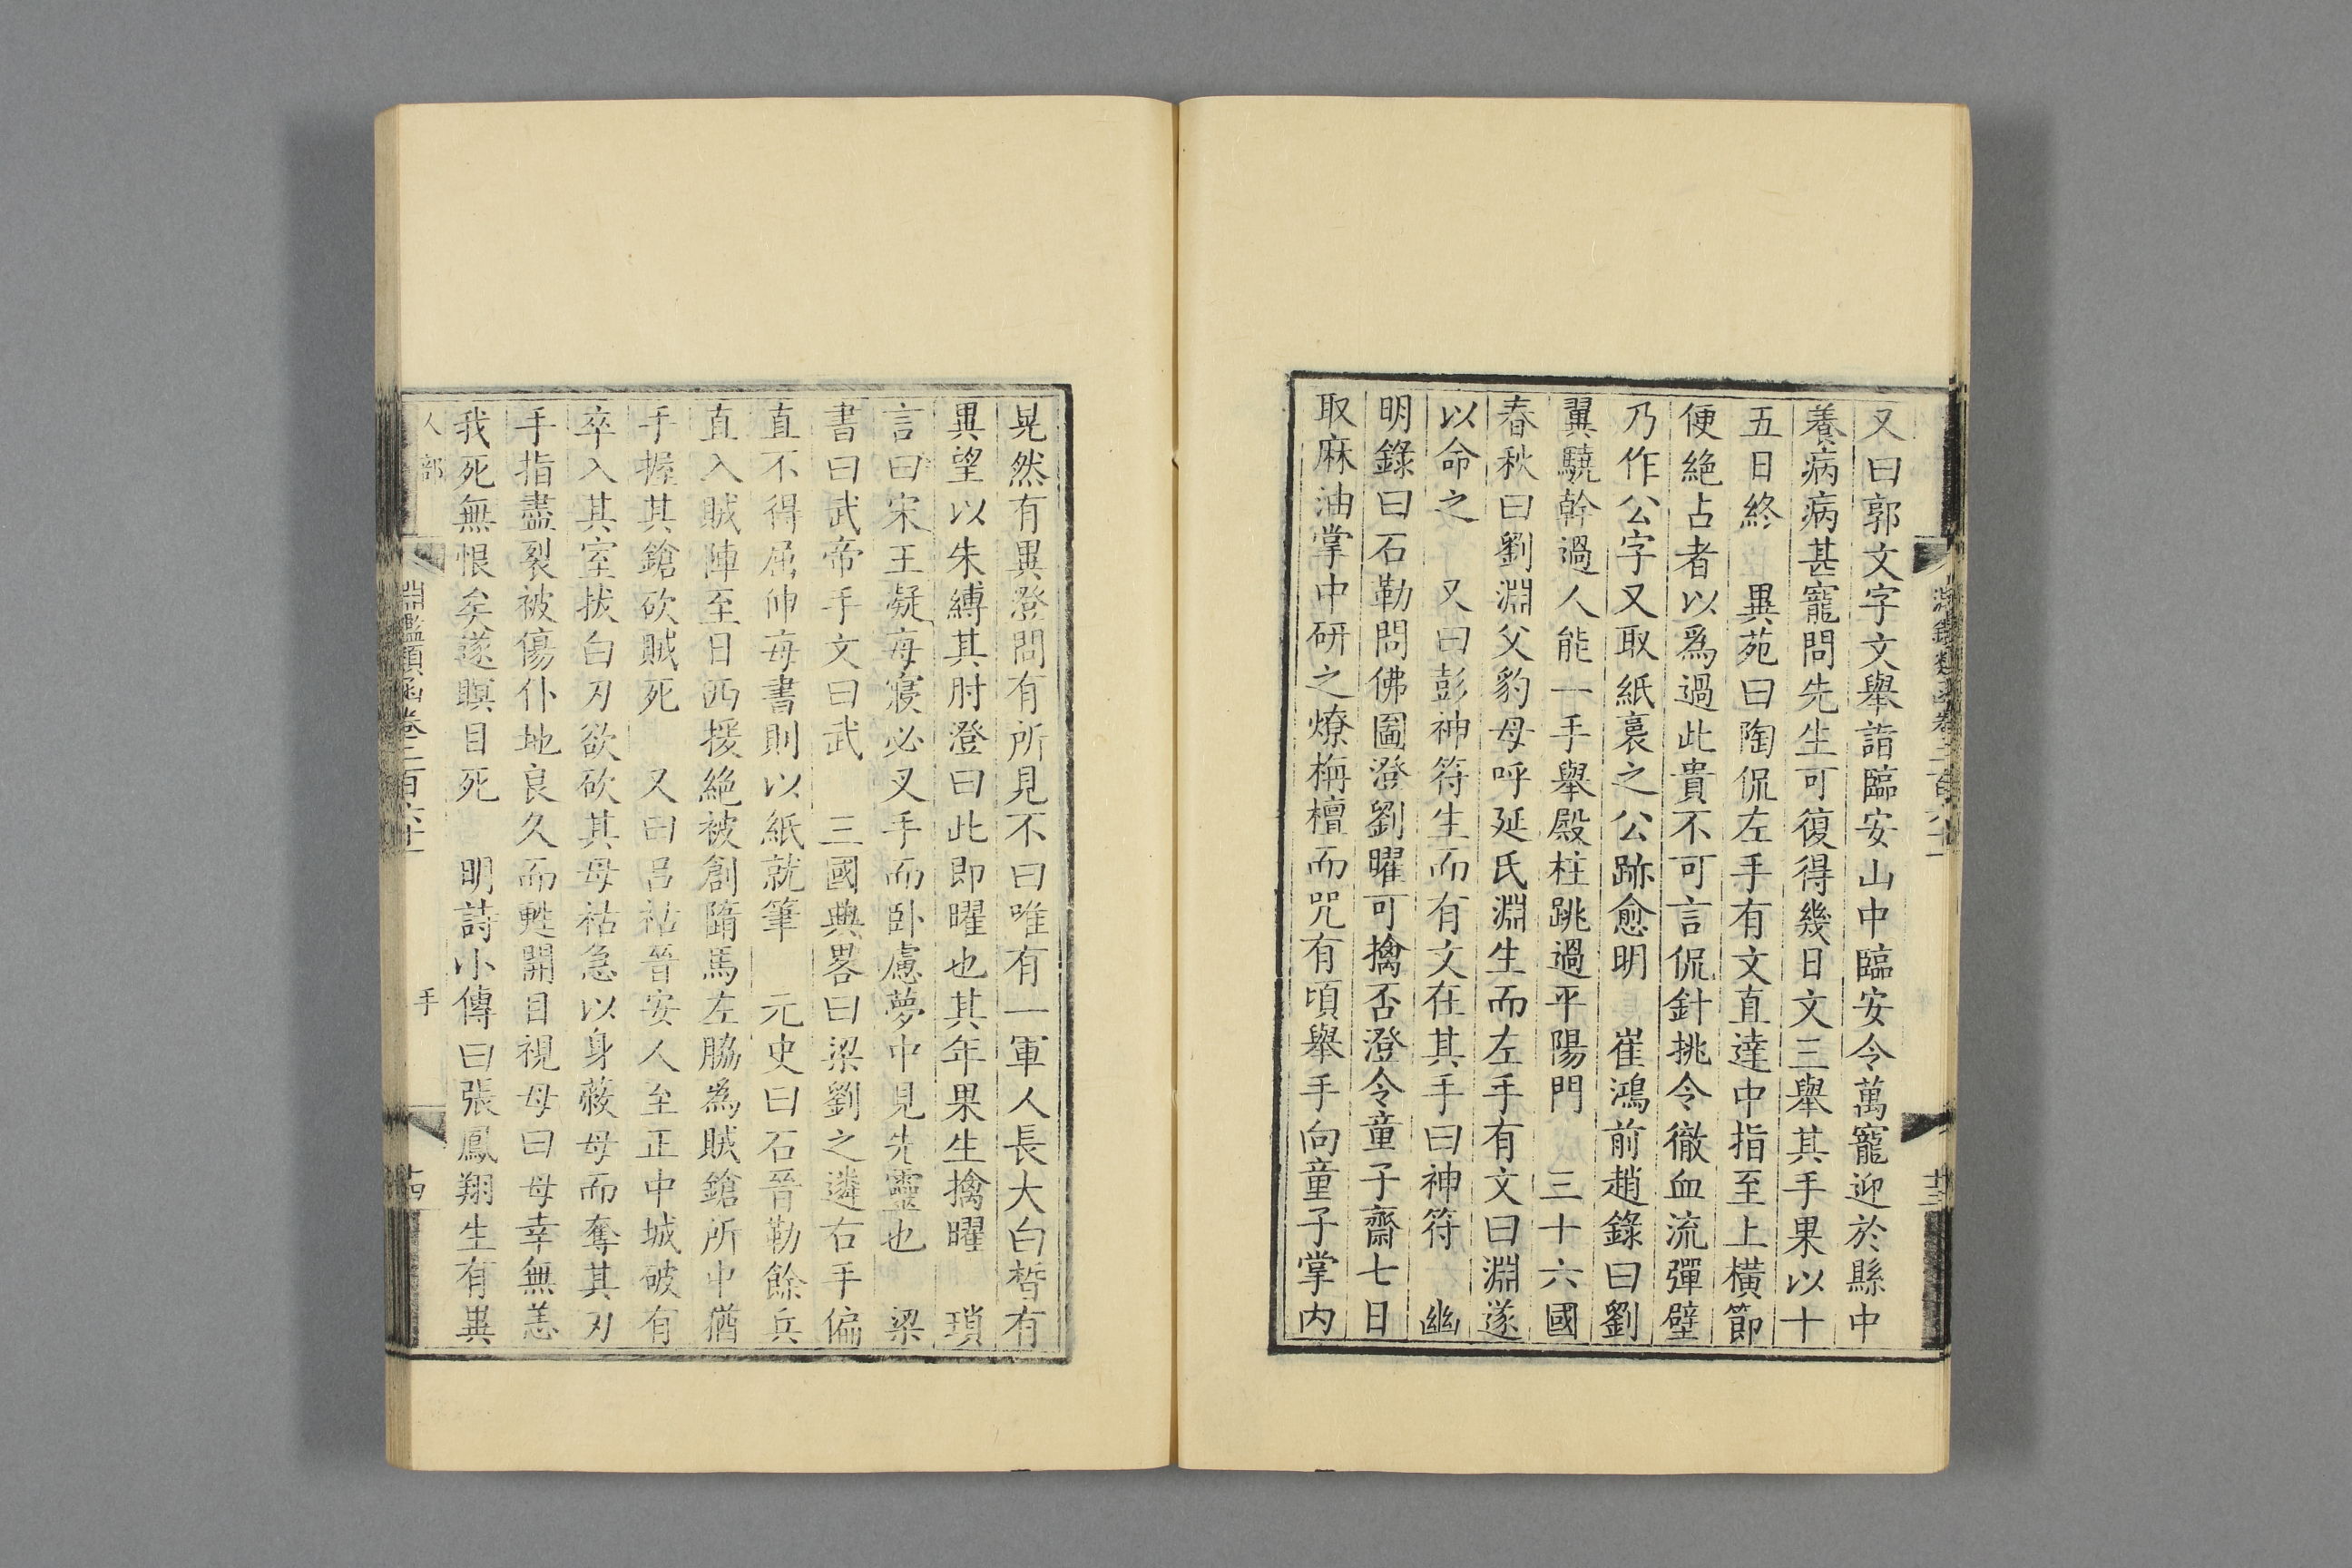 又曰郭文字文舉詣臨安山中臨安令萬寵迎於縣中
養病病甚寵問先生可復得幾日文三舉其手果以十
五日終　異苑曰陶侃左手有文直達中指至上橫節
便絶占者以爲過此貴不可言侃針挑令徹血流彈壁
乃作公字又取紙裛之公跡愈明　崔鴻前趙錄曰劉
翼驍幹過人能一手舉殿柱跳過平陽門　三十六國
春秋曰劉淵父豹母呼延氏淵生而左手有文曰淵遂
以命之　又曰彭神符生而有文在其手曰神符　幽
明錄曰石勒問佛圖澄劉曜可擒否澄令童子齋七日
取麻油掌中研之燎栴檀而咒有頃舉手向童子掌内
晃然有異澄問有所見不曰唯有一軍人長大白皙有
異望以朱縛其肘澄曰此即曜也其年果生擒曜　瑣
言曰宋王凝每寢必叉手而卧慮夢中見先靈也　梁
書曰武帝手文曰武　三國典畧曰梁劉之遴右手偏
直不得屈伸每書則以紙就筆　元史曰石晉勒餘兵
直入賊陣至日西援絶被創隋馬左脇爲賊鎗所中猶
手握其鎗砍賊死　又曰呂祜晉安人至正中城破有
卒入其室拔白刃欲砍其母祜急以身蔽母而奪其刃
手指盡裂被傷仆地良久而甦開目視母曰母幸無恙
我死無恨矣遂瞑目死　明詩小傳曰張鳳翔生有異
人部
淵鑑類函卷二百六十
手